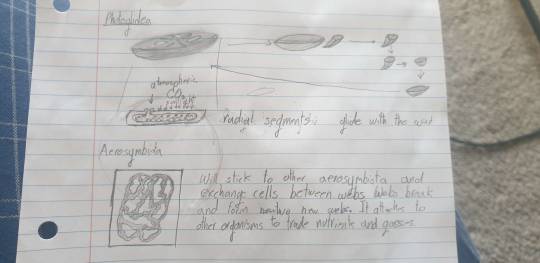 Photoglidea
atmospheric
CO₂
radial segments: glide with the wind
Aerosymbiota
Will stick to other aerosymbiota and
exchange cells between webs. Webs break
and form new webs. It attaches to
other organisms to trade nutrients and gasses.